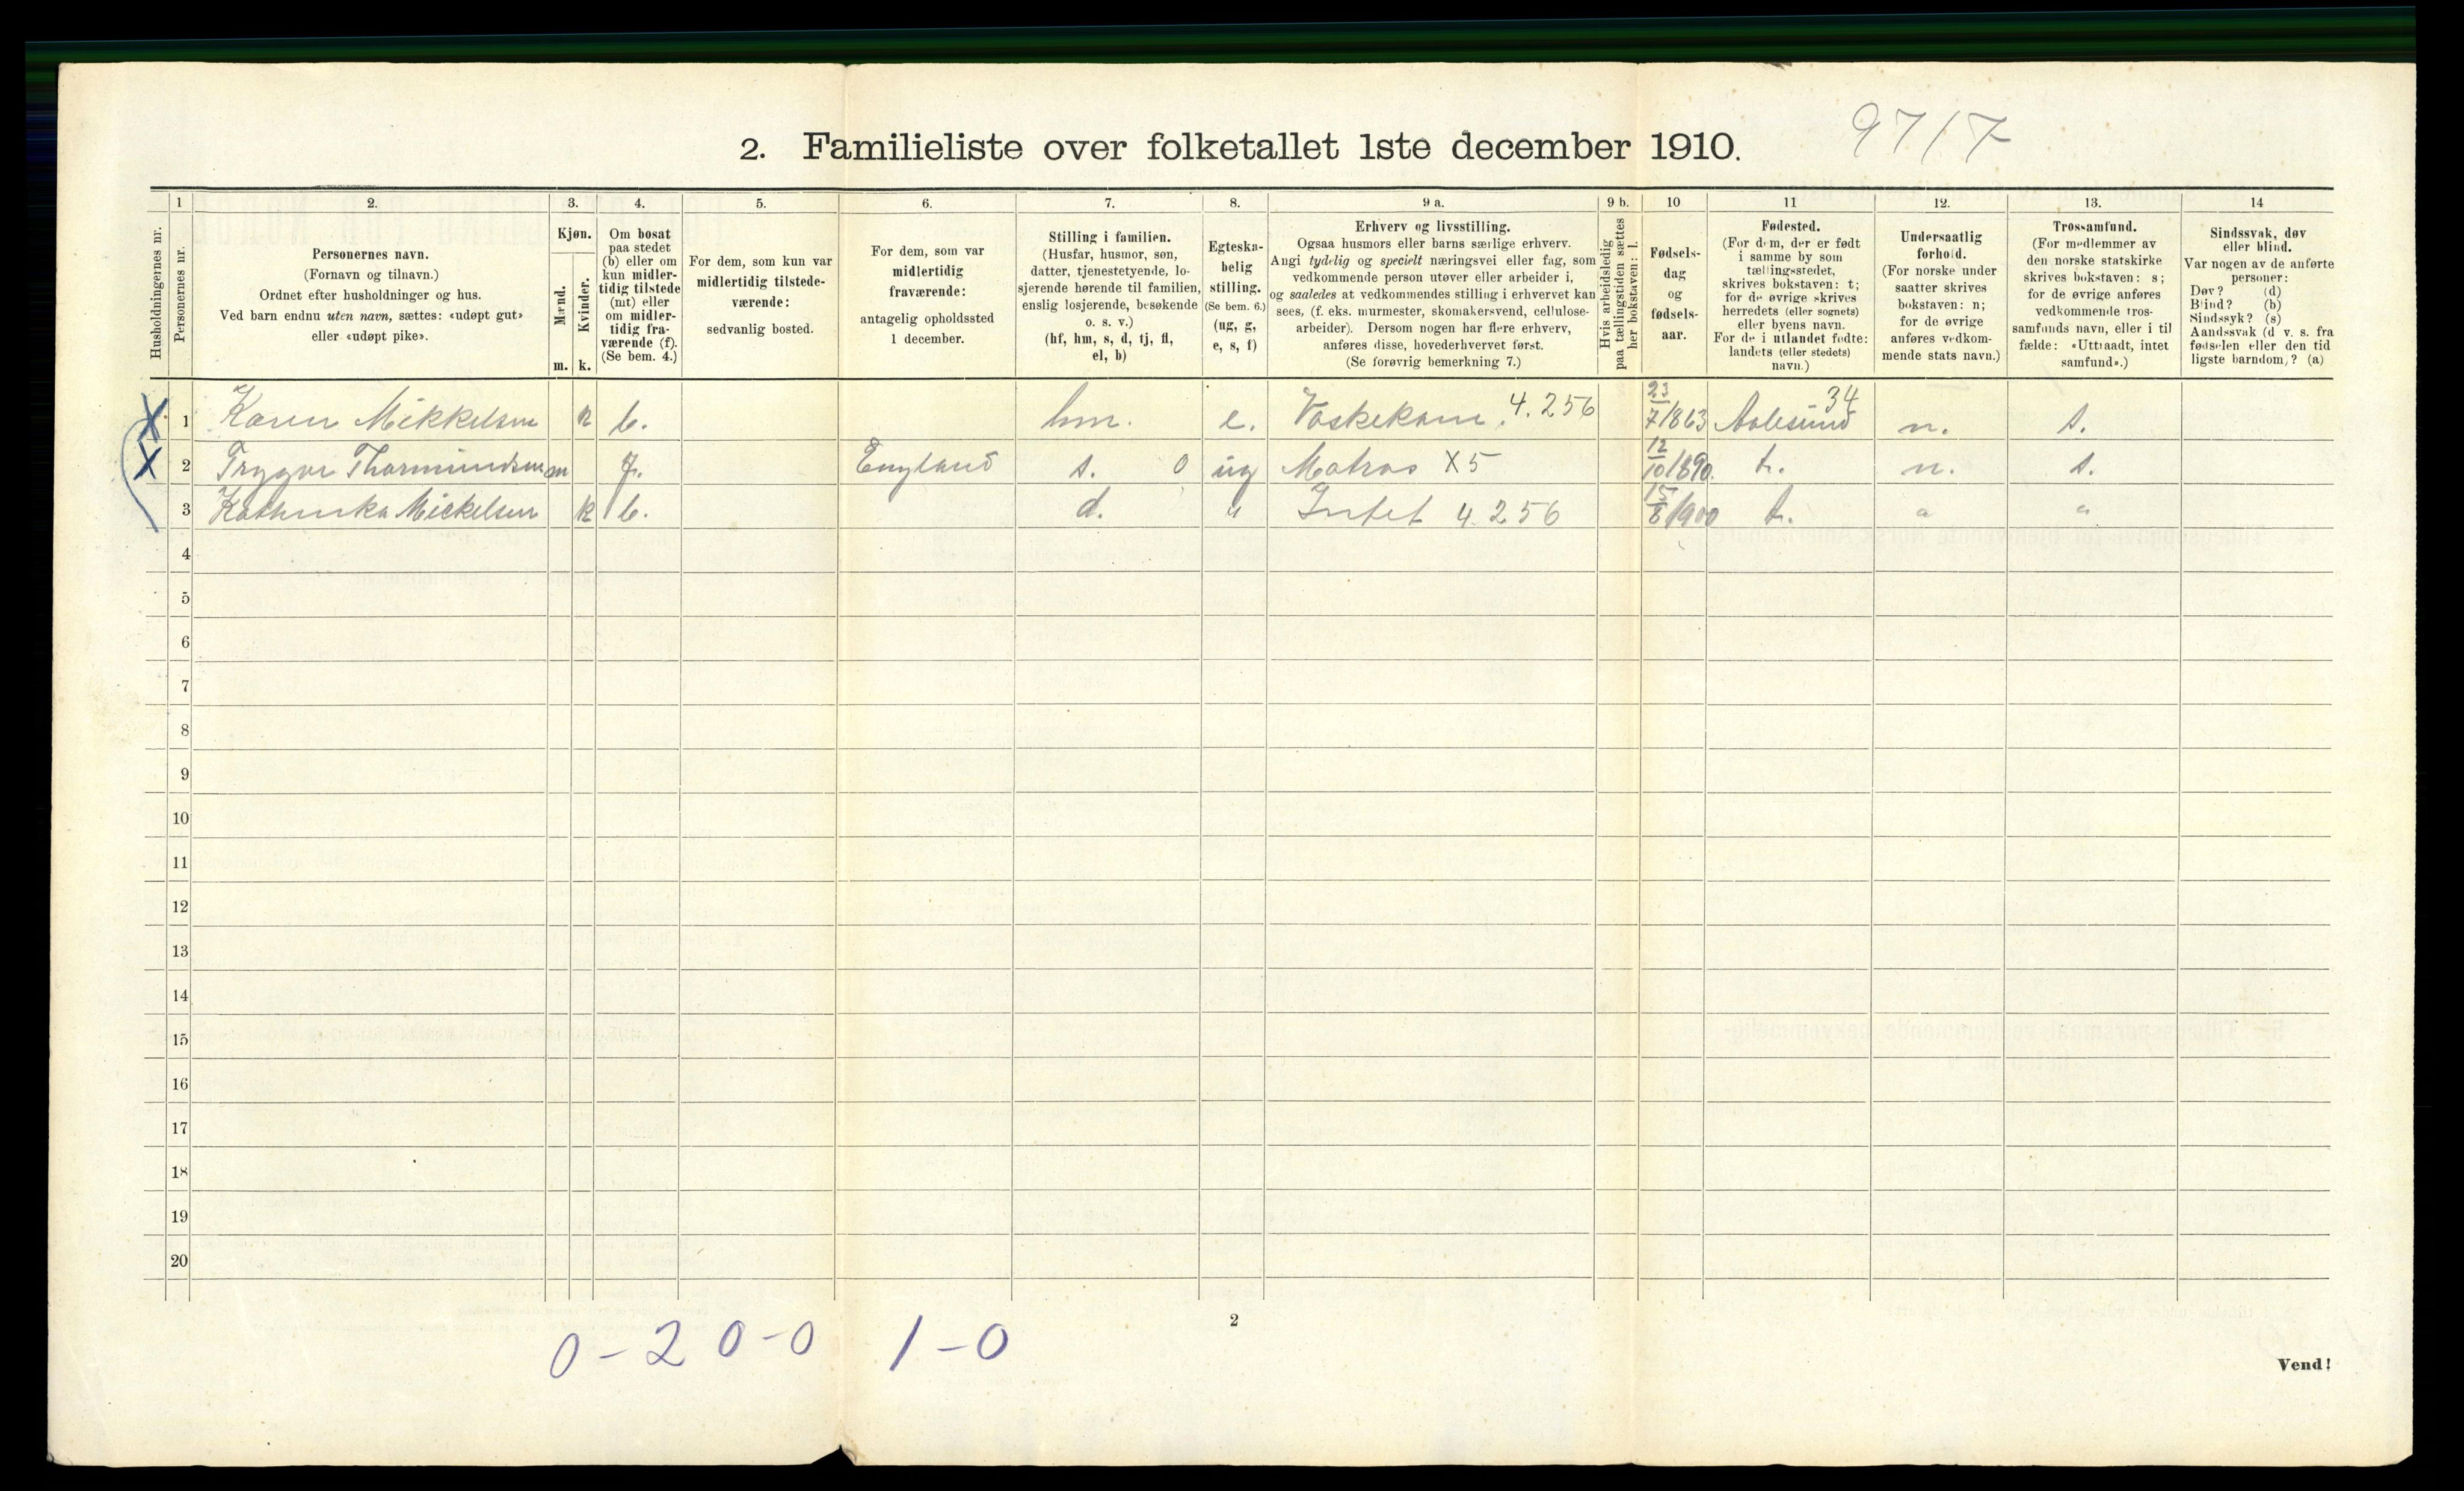 9717
2. Familieliste over folketallet 1ste december 1910.
Husholdningernes nr.
1
Personernes nr.
2.
Personernes navn.
(Fornavn og tilnavn.)
Ordnet efter husholdninger og hus.
Ved barn endnu uten navn, sættes: «udøpt gut»
eller «udøpt pike».
3.
Kjøn.
Mænd.
Kvinder.
m. k.
4.
Om bosat
paa stedet
(b) eller om
kun midler-
tidig tilstede
(mt) eller
om midler-
tidig fra-
værende (f).
(Se bem. 4.)
5.
For dem, som kun var
midlertidig tilstede-
værende:
sedvanlig bosted.
6.
For dem, som var
midlertidig
fraværende:
antagelig opholdssted
1 december.
7.
Stilling i familien.
(Husfar, husmor, søn,
datter, tjenestetyende, lo-
sjerende hørende til familien,
enslig losjerende, besøkende
o. s. v.)
(hf, hm, s, d, tj, fl,
el, b)
8.
Egteska-
belig
stilling.
(Se bem. 6.)
(ug, g,
e, s, f)
9 a.
Erhverv og livsstilling.
Ogsaa husmors eller barns særlige erhverv.
Angi tydelig og specielt næringsvei eller fag, som
vedkommende person utøver eller arbeider i,
og saaledes at vedkommendes stilling i erhvervet kan
sees, (f. eks. murmester, skomakersvend, cellulose-
arbeider). Dersom nogen har flere erhverv,
anføres disse, hovederhvervet først.
(Se forøvrig bemerkning 7.)
9 b.
Hvis arbeidsledig
paa tællingstiden sættes
her bokstaven: l.
10
Fødsels-
dag
og
fødsels-
aar.
11
Fødested.
(For dem, der er født
i samme by som
tællingsstedet,
skrives bokstaven: t;
for de øvrige skrives
herredets (eller sognets)
eller byens navn.
For de i utlandet fødte:
landets (eller stedets)
navn.)
12.
Undersaatlig
forhold.
(For norske under
saatter skrives
bokstaven: n;
for de øvrige
anføres vedkom-
mende stats navn.)
13.
Trossamfund.
(For medlemmer av
den norske statskirke
skrives bokstaven: s;
for de øvrige anføres
vedkommende tros-
samfunds navn, eller i til
fælde: «Uttraadt, intet
samfund».)
14
Sindssvak, døv
eller blind.
Var nogen av de anførte
personer:
Døv? (d)
Blind? (b)
Sindssyk? (s)
Aandssvak (d v. s. fra
fødselen eller den tid
ligste barndom,? (a)
X 1 Karen Mikkelsen k b. hm. e. Vaskekone. 4.256 23/7 1863 Aalesund 34 n. s.
X 2 Trygve Thormundsen m f. England s. 0 ug Matros X5 12/10 1890. t. n. s.
3 Kathinka Mickelsen k b. d. " Intet 4.256 15/8 1900 t. " "
4
5
6
7
8
9
10
11
12
13
14
15
16
17
18
19
20
0-2 0-0 1-0
2
Vend!